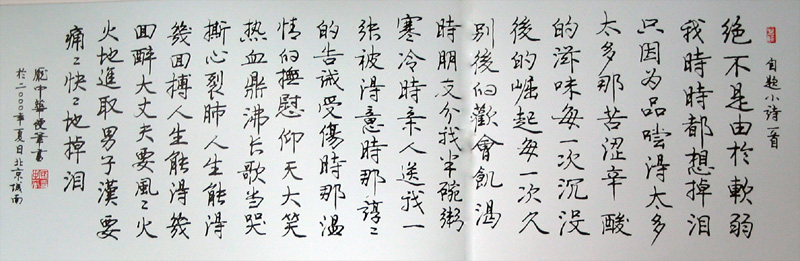 自題小詩一首
絕不是由於軟弱
我時時都想掉泪
只因为品嚐得太多
太多那苦澀辛酸
的滋味每一次沉没
後的崛起每一次久
别後的歡會飢渴
時朋友分我半碗粥
寒冷時親人送我一
張被得意時那諄〻
的告誡受傷時那温
情的撫慰仰天大笑
热血鼎沸長歌当哭
撕心裂肺人生能得
幾回搏人生能得幾
回醉大丈夫要風〻火
火地進取男子漢要
痛〻快〻地掉泪
龐中華硬筆書
於二〇〇〇年夏日北京城南